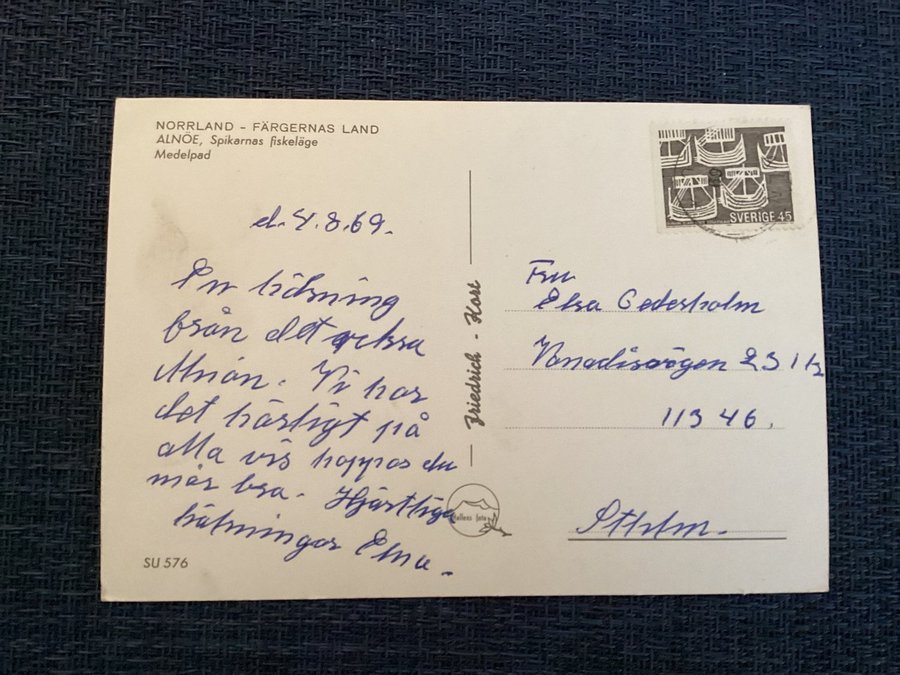 NORRLAND - FÄRGERNAS LAND
ALNÖE, Spikarnas fiskeläge
Medelpad
d. 4.8.69.
En hälsning
från det vackra
Alnön. Vi har
det härligt på
alla vis hoppas du
mår bra. Hjärtliga
hälsningar Elna.
SU 576
Friedrich - Kort
foto
SVERIGE 45
Fru
Elsa Cederholm
Vanadisvägen 23
113 46.
Sthlm.